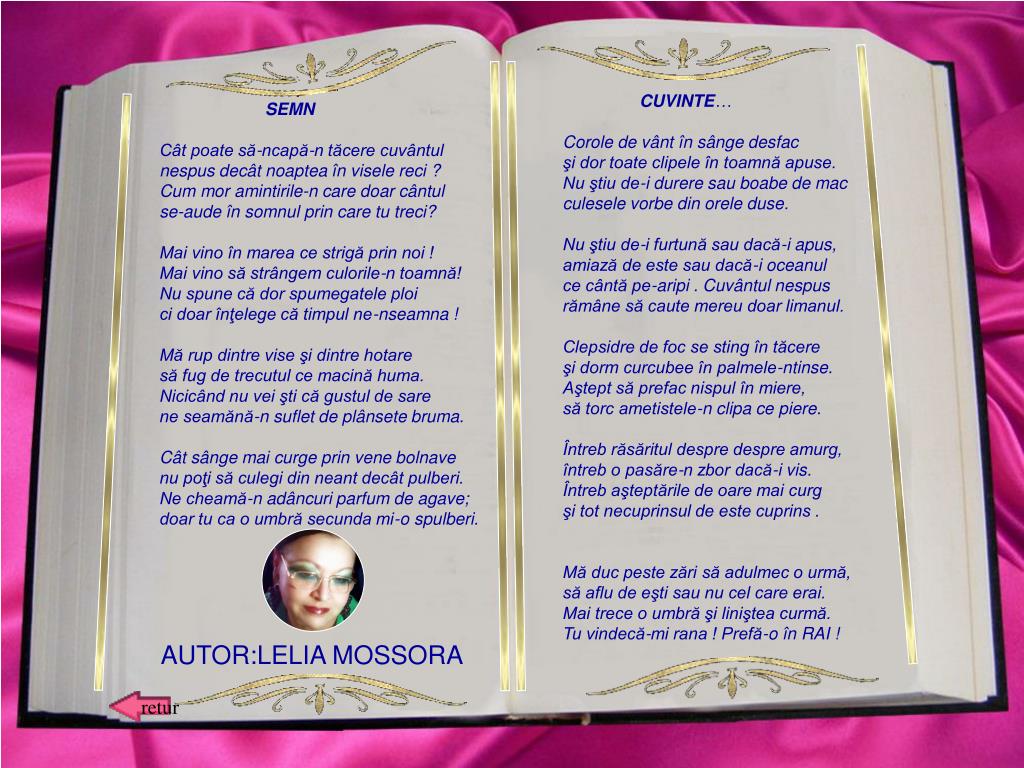 SEMN
Cât poate să-ncapă-n tăcere cuvântul
nespus decât noaptea în visele reci ?
Cum mor amintirile-n care doar cântul
se-aude în somnul prin care tu treci?
Mai vino în marea ce strigă prin noi !
Mai vino să strângem culorile-n toamnă!
Nu spune că dor spumegatele ploi
ci doar înţelege că timpul ne-nseamna !
Mă rup dintre vise şi dintre hotare
să fug de trecutul ce macină huma.
Nicicând nu vei şti că gustul de sare
ne seamănă-n suflet de plânsete bruma.
Cât sânge mai curge prin vene bolnave
nu poţi să culegi din neant decât pulberi.
Ne cheamă-n adâncuri parfum de agave;
doar tu ca o umbră secunda mi-o spulberi.
AUTOR:LELIA MOSSORA
retur
CUVINTE…
Corole de vânt în sânge desfac
şi dor toate clipele în toamnă apuse.
Nu ştiu de-i durere sau boabe de mac
culesele vorbe din orele duse.
Nu ştiu de-i furtună sau dacă-i apus,
amiază de este sau dacă-i oceanul
ce cântă pe-aripi . Cuvântul nespus
rămâne să caute mereu doar limanul.
Clepsidre de foc se sting în tăcere
şi dorm curcubee în palmele-ntinse.
Aştept să prefac nispul în miere,
să torc ametistele-n clipa ce piere.
Întreb răsăritul despre despre amurg,
întreb o pasăre-n zbor dacă-i vis.
Întreb aşteptările de oare mai curg
şi tot necuprinsul de este cuprins .
Mă duc peste zări să adulmec o urmă,
să aflu de eşti sau nu cel care erai.
Mai trece o umbră şi liniştea curmă.
Tu vindecă-mi rana ! Prefă-o în RAI !